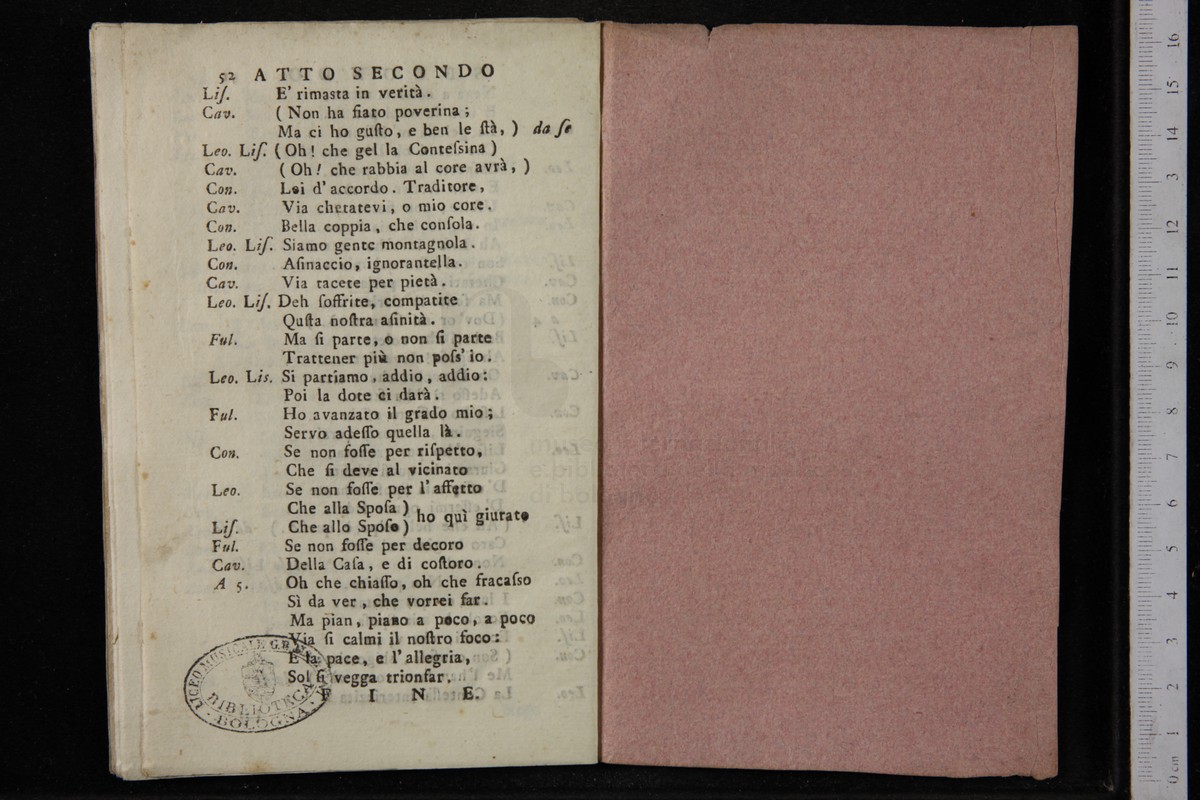 52 ATTO SECONDO
Liſ. E' rimasta in verità.
Cav. (Non ha fiato poverina;
Ma ci ho guſto, e ben le ſtà,) da ſe
Leo. Liſ. (Oh! che gel la Conteſsina)
Cav. (Oh! che rabbia al core avrà,)
Con. Lei d'accordo. Traditore,
Cav. Via chetatevi, o mio core.
Con. Bella coppia, che conſola.
Leo. Liſ. Siamo gente montagnola.
Con. Aſinaccio, ignorantella.
Cav. Via tacete per pietà.
Leo. Liſ. Deh ſoffrite, compatite
Quſta noſtra aſinità.
Ful. Ma ſi parte, o non ſi parte
Trattener più non poſs' io.
Leo. Lis. Si partiamo, addio, addio:
Poi la dote ci darà.
Ful. Ho avanzato il grado mio;
Servo adeſſo quella là.
Con. Se non foſſe per riſpetto,
Che ſi deve al vicinato
Leo. Se non foſſe per l'affetto
Che alla Spoſa)
ho quì giurato
Liſ. Che allo Spoſo)
Ful. Se non foſſe per decoro
Cav. Della Caſa, e di coſtoro.
A 5. Oh che chiaſſo, oh che fracaſso
Sì da ver, che vorrei far.
Ma pian, piano a poco, a poco
Via ſi calmi il noſtro foco:
E la pace, e l'allegria,
Sol ſi vegga trionfar.
F I N E.
LICEO MUSICALE
BIBLIOTECA
BOLOGNA
0 cm 1 2 3 4 5 6 7 8 9 10 11 12 13 14 15 16